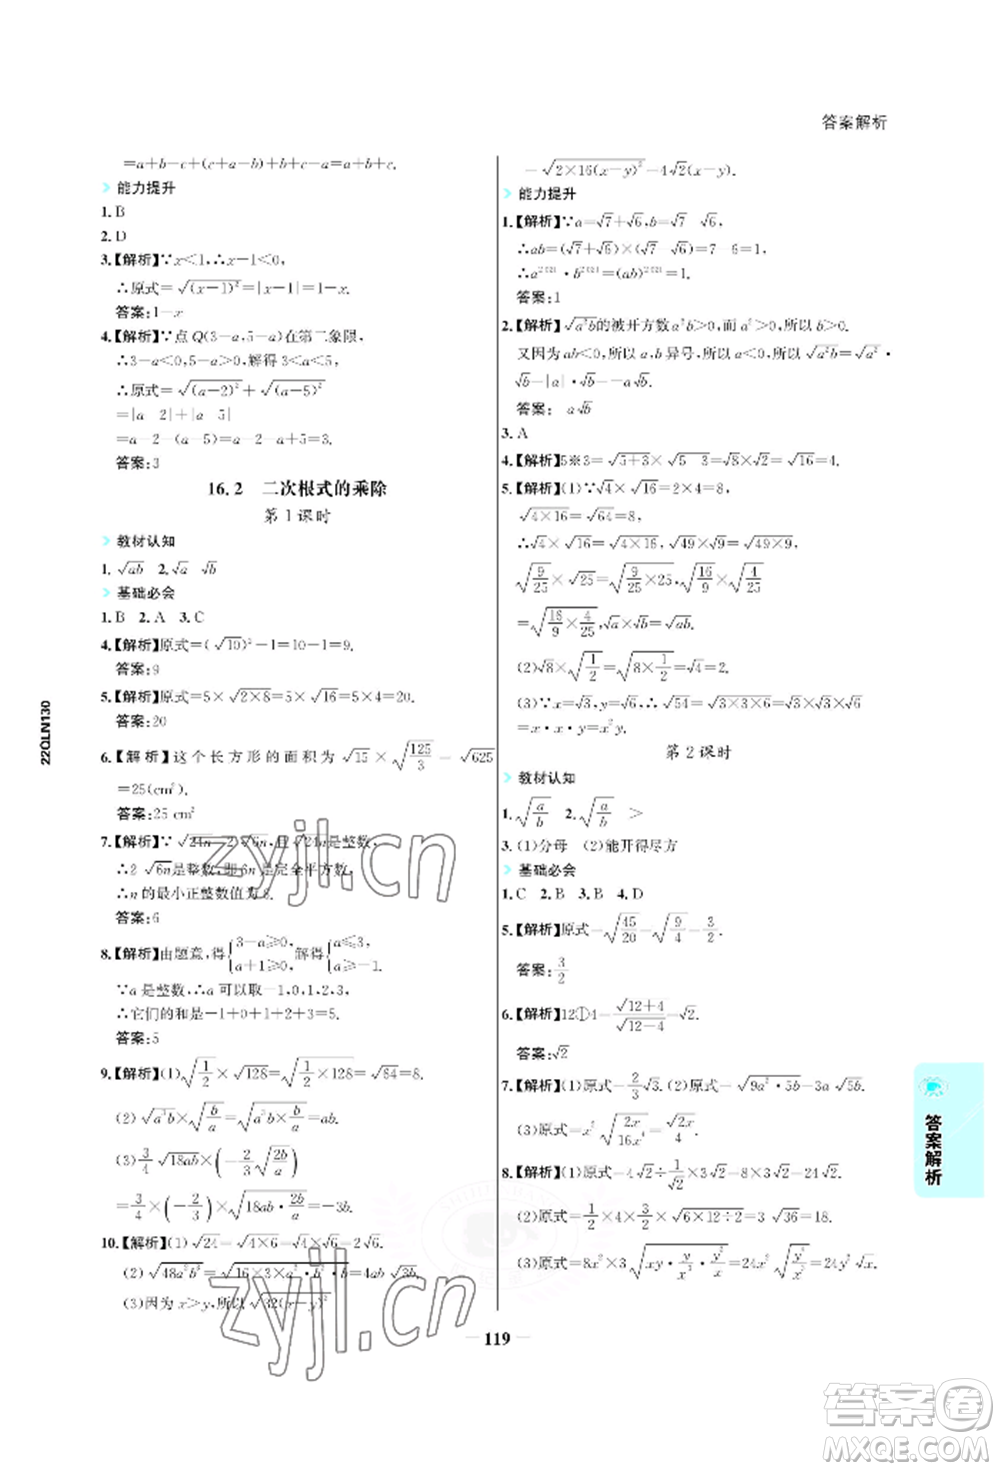 答案解析
=a+b-c+(c+a-b)+b+c-a=a+b+c.
能力提升
1. B
2. D
3.【解析】∵x<1,∴x-1<0,
∴原式=√(x-1)²=|x-1|=1-x.
答案:1-x
4.【解析】∵点Q(3-a,5-a)在第二象限,
∴3-a<0,5-a>0,解得3<a<5,
∴原式=√(a-2)²+√(a-5)²
=|a 2|+|a 5|
=a-2-(a-5)=a-2-a+5=3.
答案:3
16.2 二次根式的乘除
第1课时
教材认知
1.√ab 2.√a √b
基础必会
1. B 2. A 3. C
4.【解析】原式=(√10)²-1=10-1=9.
答案:9
5.【解析】原式=5×√2×8=5×√16=5×4=20.
答案:20
6.【解析】这个长方形的面积为√15×√125/3=√625
=25(cm²).
答案:25 cm²
7.【解析】∵√24n=2√6n,√24n是整数,
∴2√6n是整数,即6n是完全平方数,
∴n的最小正整数值为6.
答案:6
8.【解析】由题意,得{3-a≥0, a+1≥0, 解得{a≤3, a≥-1.
∵a是整数,∴a可以取-1,0,1,2,3,
∴它们的和是-1+0+1+2+3=5.
答案:5
9.【解析】(1)√1/2×√128=√1/2×128=√64=8.
(2)√a³b×√b/a=√a³b×b/a=ab.
(3)3/4×√18ab×(2/3√2b/a)
=3/4×2/3×√18ab·2b/a=3b.
10.【解析】(1)√24=√4×6=√4×√6=2√6.
(2)√48a²b³=√16×3×a²·b²·b=4ab√3b.
(3)因为x>y,所以√32(x-y)²
=√2×16(x-y)²=4√2(x-y).
能力提升
1.【解析】∵a=√7+√6,b=√7 √6,
∴ab=(√7+√6)×(√7 √6)=7 6=1,
∴a²⁰²¹·b²⁰²¹=(ab)²⁰²¹=1.
答案:1
2.【解析】√a²b的被开方数a²b>0,而a²>0,所以b>0.
又因为ab<0,所以a,b异号,所以a<0,所以√a²b=√a²·
√b=|a|·√b=-a√b.
答案: a√b
3. A
4.【解析】5※3=√5+3×√5 3=√8×√2=√16=4.
5.【解析】(1)∵√4×√16=2×4=8,
√4×16=√64=8,
∴√4×√16=√4×16,√49×√9=√49×9,
√9/25×√25=√9/25×25,√16/9×√4/25
=√16/9×4/25.
(2)√8×√1/2=√8×1/2=√4=2.
(3)∵x=√3,y=√6,∴√54=√3×3×6=√3×√3×√6
=x·x·y=x²y.
第2课时
教材认知
1.√a/b 2.√a/b >
3. (1)分母 (2)能开得尽方
基础必会
1. C 2. B 3. B 4. D
5.【解析】原式=√45/20=√9/4=3/2.
答案:3/2
6.【解析】12①4=√12+4/√12-4=√2.
答案:√2
7.【解析】(1)原式=2/3√3.(2)原式=√9a²·5b=3a√5b.
(3)原式=x²√2x/16x⁴=√2x/4.
8.【解析】(1)原式=4√2÷√2/3×3√2=4√3×3√2=24√3.
(2)原式=1/2×4×3/4×√6×12÷2=3/2×√36=18.
119
22QLN130
答案解析
zyjl.cn
zyjl.cn
答案圈
MXQE.COM